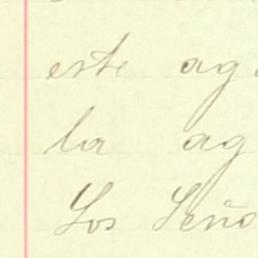 este ag
la ag
Los Seño